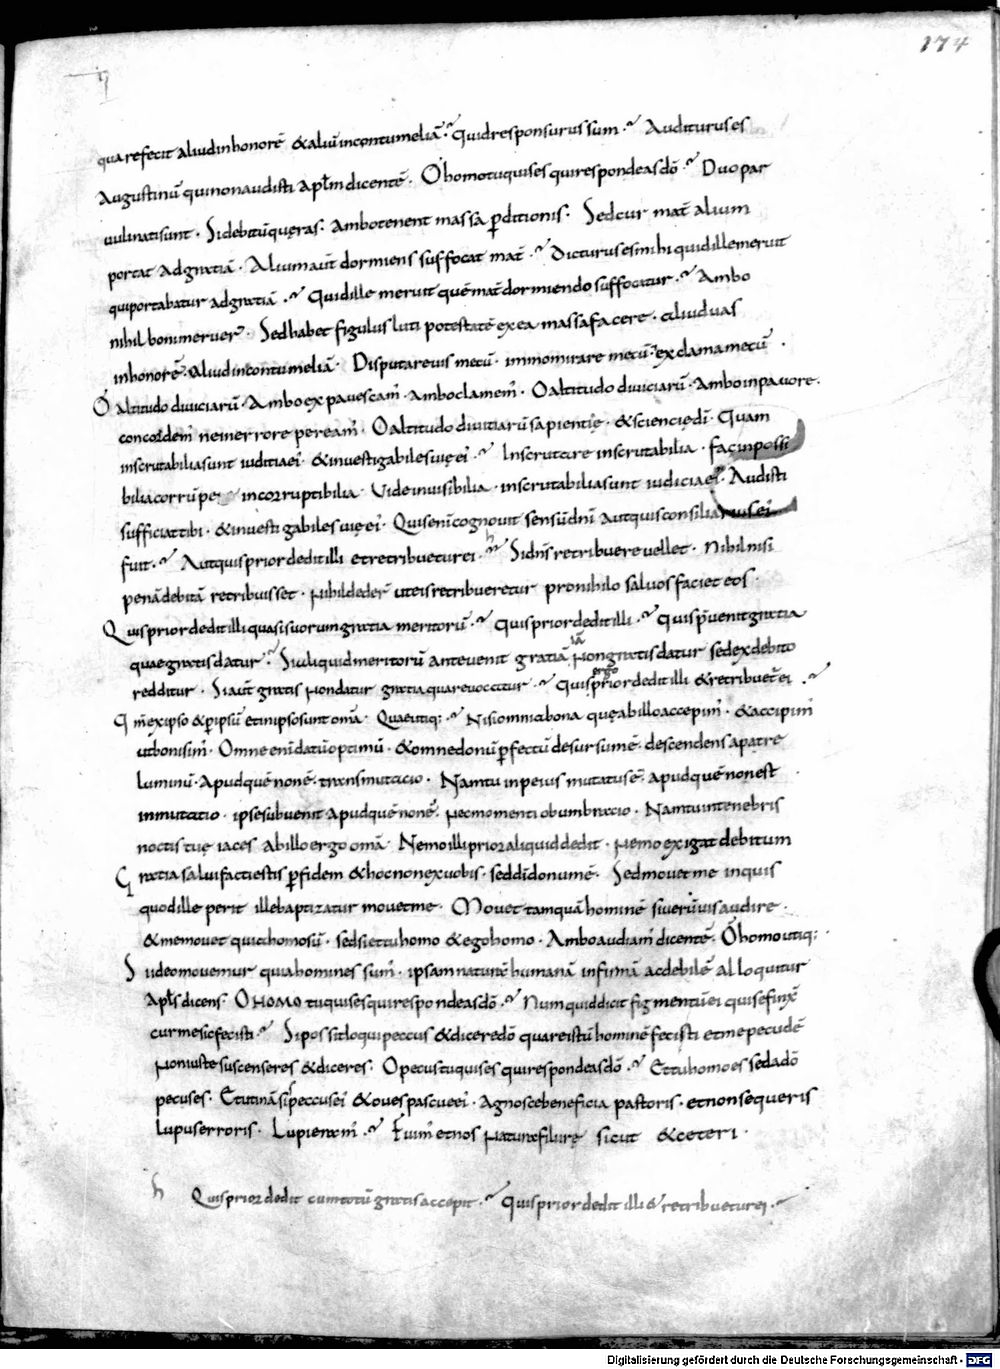 174
qua refecit aliud in honorē & aliū in contumeliā. Quid responsurus sum. Auditurus es
Augustinū qui non audisti apłm dicentē. O homo tu quis es qui respondeas dō. Duo par
vuli nati sunt. Si debitū quęras. Ambo tenent massa pditionis. Sed cur mat̄ alium
portat ad gratiā. Alium aut̄ dormiens suffocat mat̄. Dicturus es mihi quid ille meruit
qui portabatur ad gratiā. Quid ille meruit quē mat̄ dormiendo suffocatur. Ambo
nihil boni meruer̄. Sed habet figulus luti potestatē ex ea massa facere. aliud uas
in honorē. Aliud in contumeliā. Disputare uis mecū. immo mirare mecū. exclama mecū.
O altitudo diuiciarū. Ambo expauescam̄. Ambo clamem̄. O altitudo diuiciarū. Ambo in pauore.
concordem̄ ne in errore peream̄. O altitudo divitiarū sapientię. & sciencię dī. Quam
inscrutabilia sunt iuditia ei. & inuestigabiles uię ei. Inscrutare inscrutabilia. fac inpossi
bilia corrūpe incorruptibilia. Vide inuisibilia. inscrutabilia sunt iudicia ei. Audisti
sufficiat tibi. & inuestigabiles uię ei. Quis enī cognouit sensū dnī aut quis consiliarius ei
fuit. Aut quis prior dedit illi et retribuetur ei. h Si dn̄s retribuere vellet. Nihil nisi
penā debitā retribuisset. Nihil deder̄ ut eis retribueretur pro nihilo saluos faciet eos.
Quis prior dedit illi quasi suorum gratia meritorū. Quis prior dedit illi. Quis p̄uenit gratia
quae gratis datur. Si aliquid meritorū antevenit gratiā iā Non gratis datur sed ex debito
redditur. Si aut̄ gratis non datur gratia quare vocatur. Quis ergo prior dedit illi & retribuet̄ ei.
Qm̄ ex ipso & p ipsū et in ipso sunt omā. Quae utiq;. Nisi omnia bona quę ab illo accepim̄. & accipim̄
ut boni sim̄. Omne enī datū optimū. & omne donū pfectū desursum ē. descendens a patre
luminū. Apud quē non ē. transmutacio. Nam tu in peius mutatus ē. apud quē non est
inmutatio. ipse subvenit apud quē non ē. Nec momenti obumbracio. Nam tu in tenebris
noctis tuę iaces ab illo ergo omā. Nemo illi prior aliquid dedit. Nemo exigat debitum
Gratia salui facti estis p fidem & hoc non ex uobis. sed dī donum ē. Sed movet me inquis
quod ille perit ille baptizatur movet me. Movet tamquā hominē si verū uis audire.
& me movet quia homo sū. sed si et tu homo & ego homo. Ambo audiam̄ dicentē. O homo utiq;.
Si ideo movemur quia homines sum̄. ipsam naturā humanā infirmā ac debilē alloquitur
apłs dicens. O HOMO tu quis es qui respondeas dō. Numquid dicit figmentū ei qui se finx̄
cur me sic fecisti. Si posset loqui peccus & dicere dō quare istū hominē fecisti et me pecudē
Non iuste suscenseres & diceres. O pecus tu quis es qui respondeas dō. Et tu homo es sed ad dō
pecus es. Et utinā sis peccus ei & oues pascue ei. Agnosce beneficia pastoris. et non sequeris
lupus erroris. Lupi eram̄. Fuim̄ et nos natura filii irę sicut & ceteri.
h Quis prior dedit cum totū gratis accepit. Quis prior dedit illi & retribuetur ei.
Digitalisierung gefördert durch die Deutsche Forschungsgemeinschaft - DFG